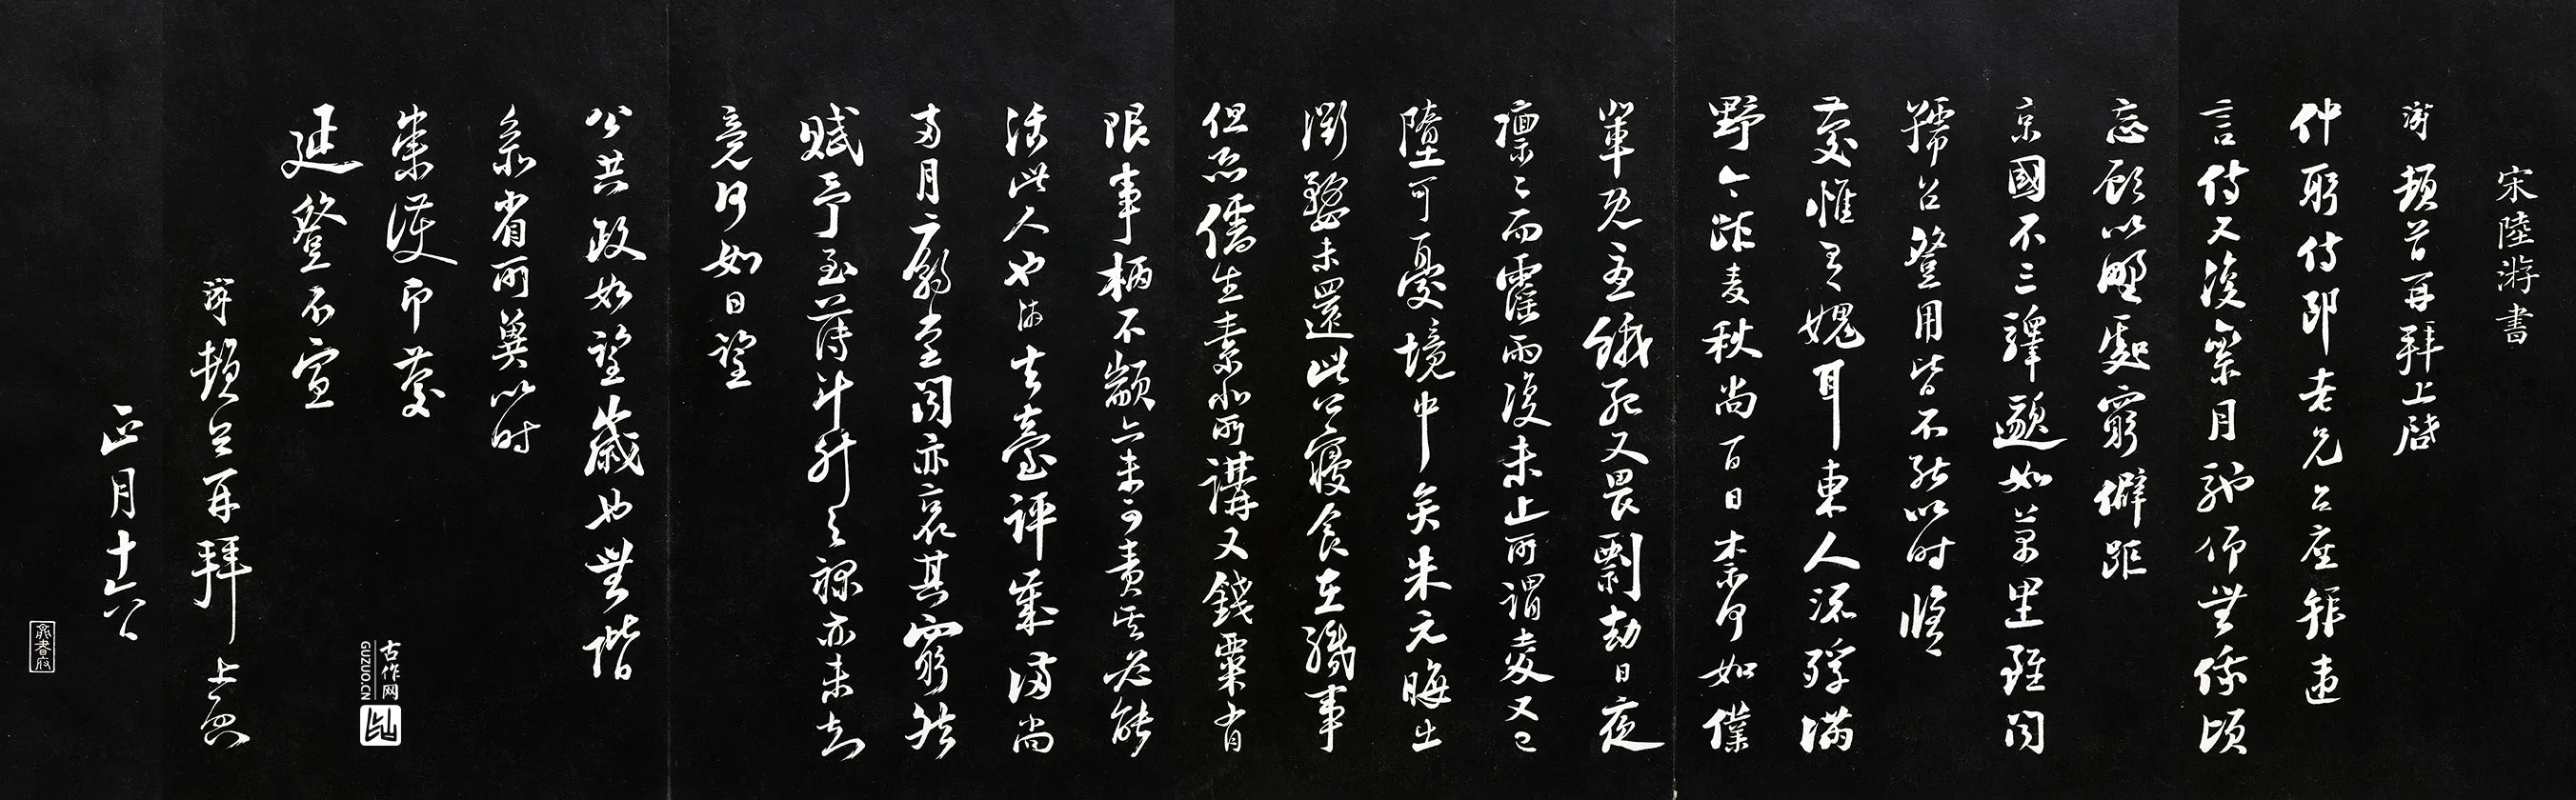 宋陸游書
游頓首再拜上啓
仲躬侍郎老兄台座拜違
言侍又復累月馳仰無俄頃
忘顧以野處窮僻距
京國不三驛邈如萬里雖聞
號召登用皆不能以時脩
慶惟有愧耳東人流殍滿
野今距麥秋尚百日奈何如僕
輩既憂餓死又畏剽劫日夜
凜〻而霪雨復未止所謂麥又已
墮可憂境中矣朱元晦出
衢婺未還此公寢食在職事
但恐儒生素非所講又錢粟有
限事柄不顓亦未可責其必能
活此人也游去臺評歲滿尚
兩月廟堂聞亦哀其窮然
賦予至薄斗升之祿亦未知
竟何如日望
公共政如望歲也無階
參省所冀以時
崇護即慶
延登不宣
游頓首再拜上啓
正月十六日
古作网
GUZUO.CN